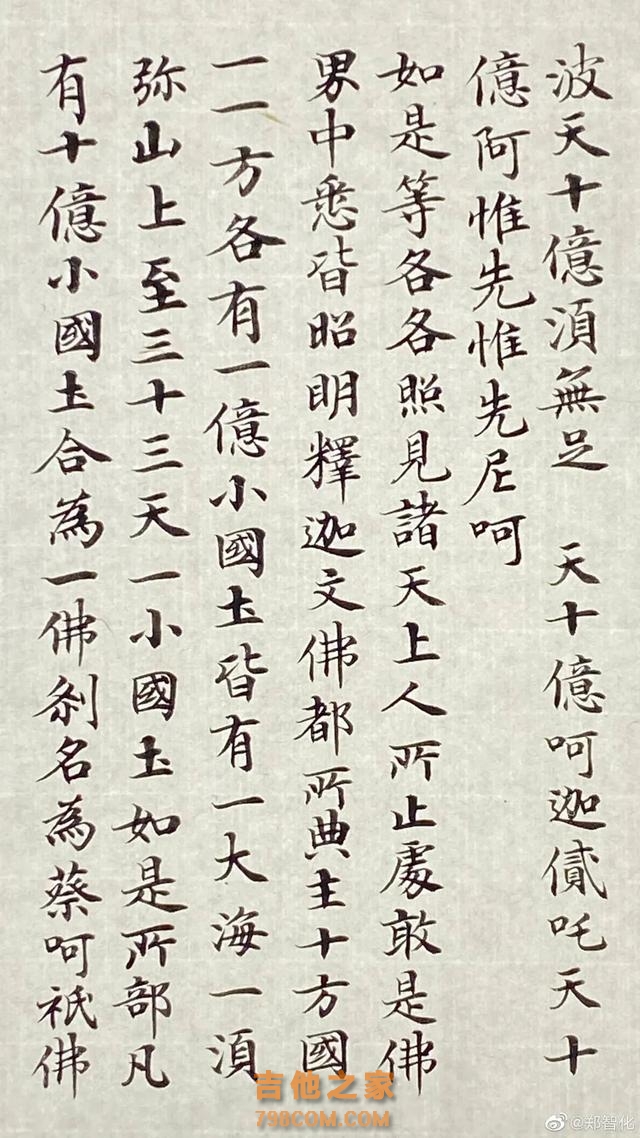 波天十億須無足 天十億呵迦貳吒天十
億阿惟先惟先尼呵
如是等各各照見諸天上人所止處敢是佛
界中悉皆昭明釋迦文佛都所典主十方國
一一方各有一億小國土皆有一大海一須
弥山上至三十三天一小國土如是所部凡
有十億小國土合為一佛刹名為蔡呵祇佛
吉他之家
798COM.COM
@郑智化